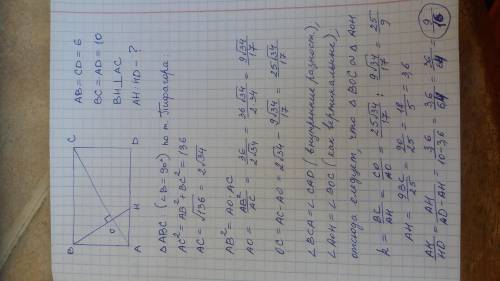 B
C
O
A
H
D
AB = CD = 6
BC = AD = 10
BH ⊥ AC
AH : HD - ?
△ ABC (∠B = 90°) по т. Пифагора:
AC² = AB² + BC² = 136
AC = √136 = 2√34
AB² = AO·AC
AO = AB²/AC = 36/2√34 = 36√34/2·34 = 9√34/17
OC = AC - AO = 2√34 - 9√34/17 = 25√34/17
∠BCA = ∠CAD (внутренние разност),
∠AOH = ∠BOC (как вертикальные),
отсюда следует, что △ BOC ∞ △ AOH
k = BC/AH = CO/AO = 25√34/17 : 9√34/17 = 25/9
AH = 9BC/25 = 90/25 = 18/5 = 3,6
AH/HD = AH/AD-AH = 3,6/10-3,6 = 3,6/6,4 = 36/64 = 9/16